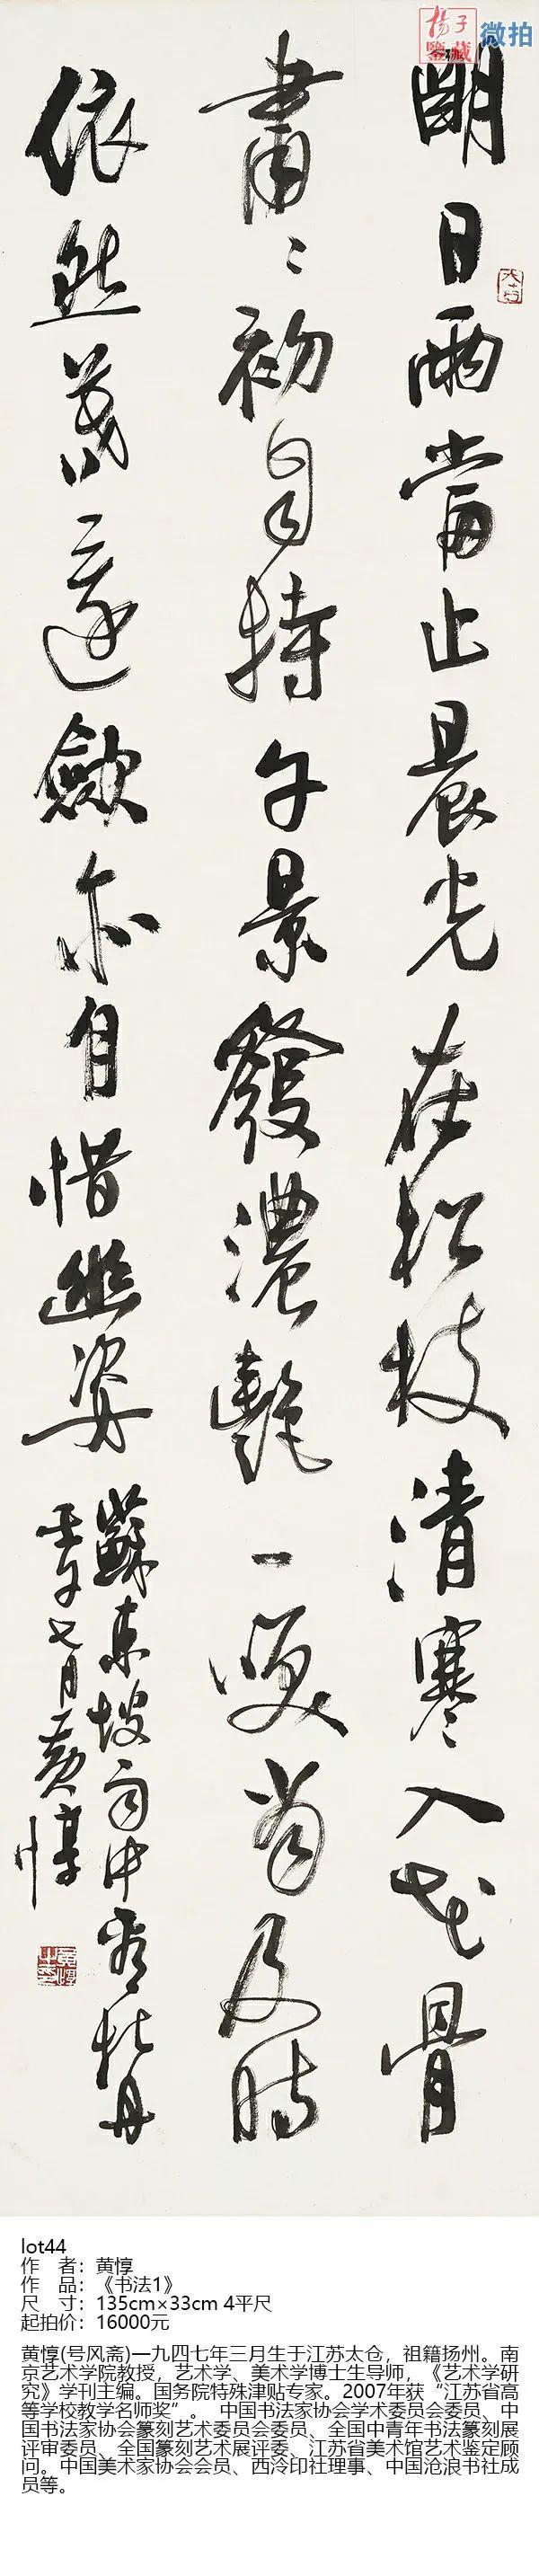 揚子
鑒藏
微拍
明日雨當止晨光在松枝清寒入花骨
大吉
肅〻初自持午景發濃艷一笑當及時
依然暮還斂亦自惜幽姿
蘇東坡雨中看牡丹
壬午七月黄惇
lot44
作 者：黄惇
作 品：《书法1》
尺 寸：135cm×33cm 4平尺
起拍价：16000元
黄惇(号风斋)一九四七年三月生于江苏太仓，祖籍扬州。南
京艺术学院教授，艺术学、美术学博士生导师，《艺术学研
究》学刊主编。国务院特殊津贴专家。2007年获“江苏省高
等学校教学名师奖”。 中国书法家协会学术委员会委员、中
国书法家协会篆刻艺术委员会委员、全国中青年书法篆刻展
评审委员、全国篆刻艺术展评委、江苏省美术馆艺术鉴定顾
问。中国美术家协会会员、西泠印社理事、中国沧浪书社成
员等。